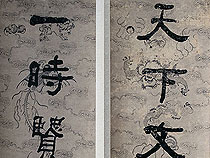 天下文
一時覽